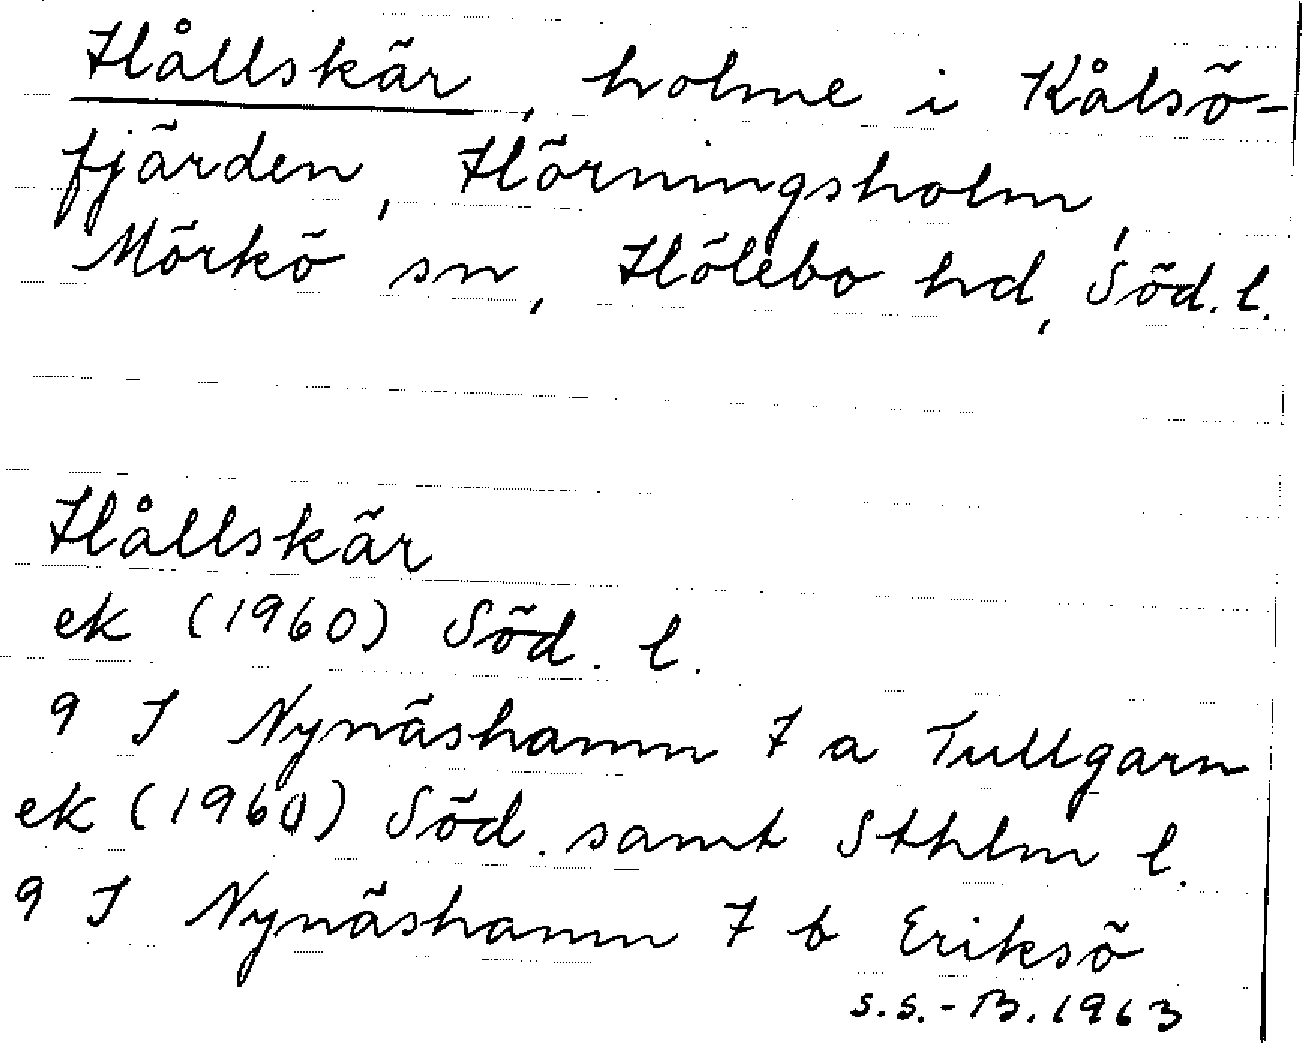 Hållskär, holme i Kålsö-
fjärden, Hörningsholm,
Mörkö sn, Hölebo hd, Söd. l.
Hållskär
ek (1960) Söd. l.
9 I Nynäshamn 7 a Tullgarn
ek (1960) Söd. samt Sthlm l.
9 I Nynäshamn 7 b Eriksö
S.S.-B. 1963